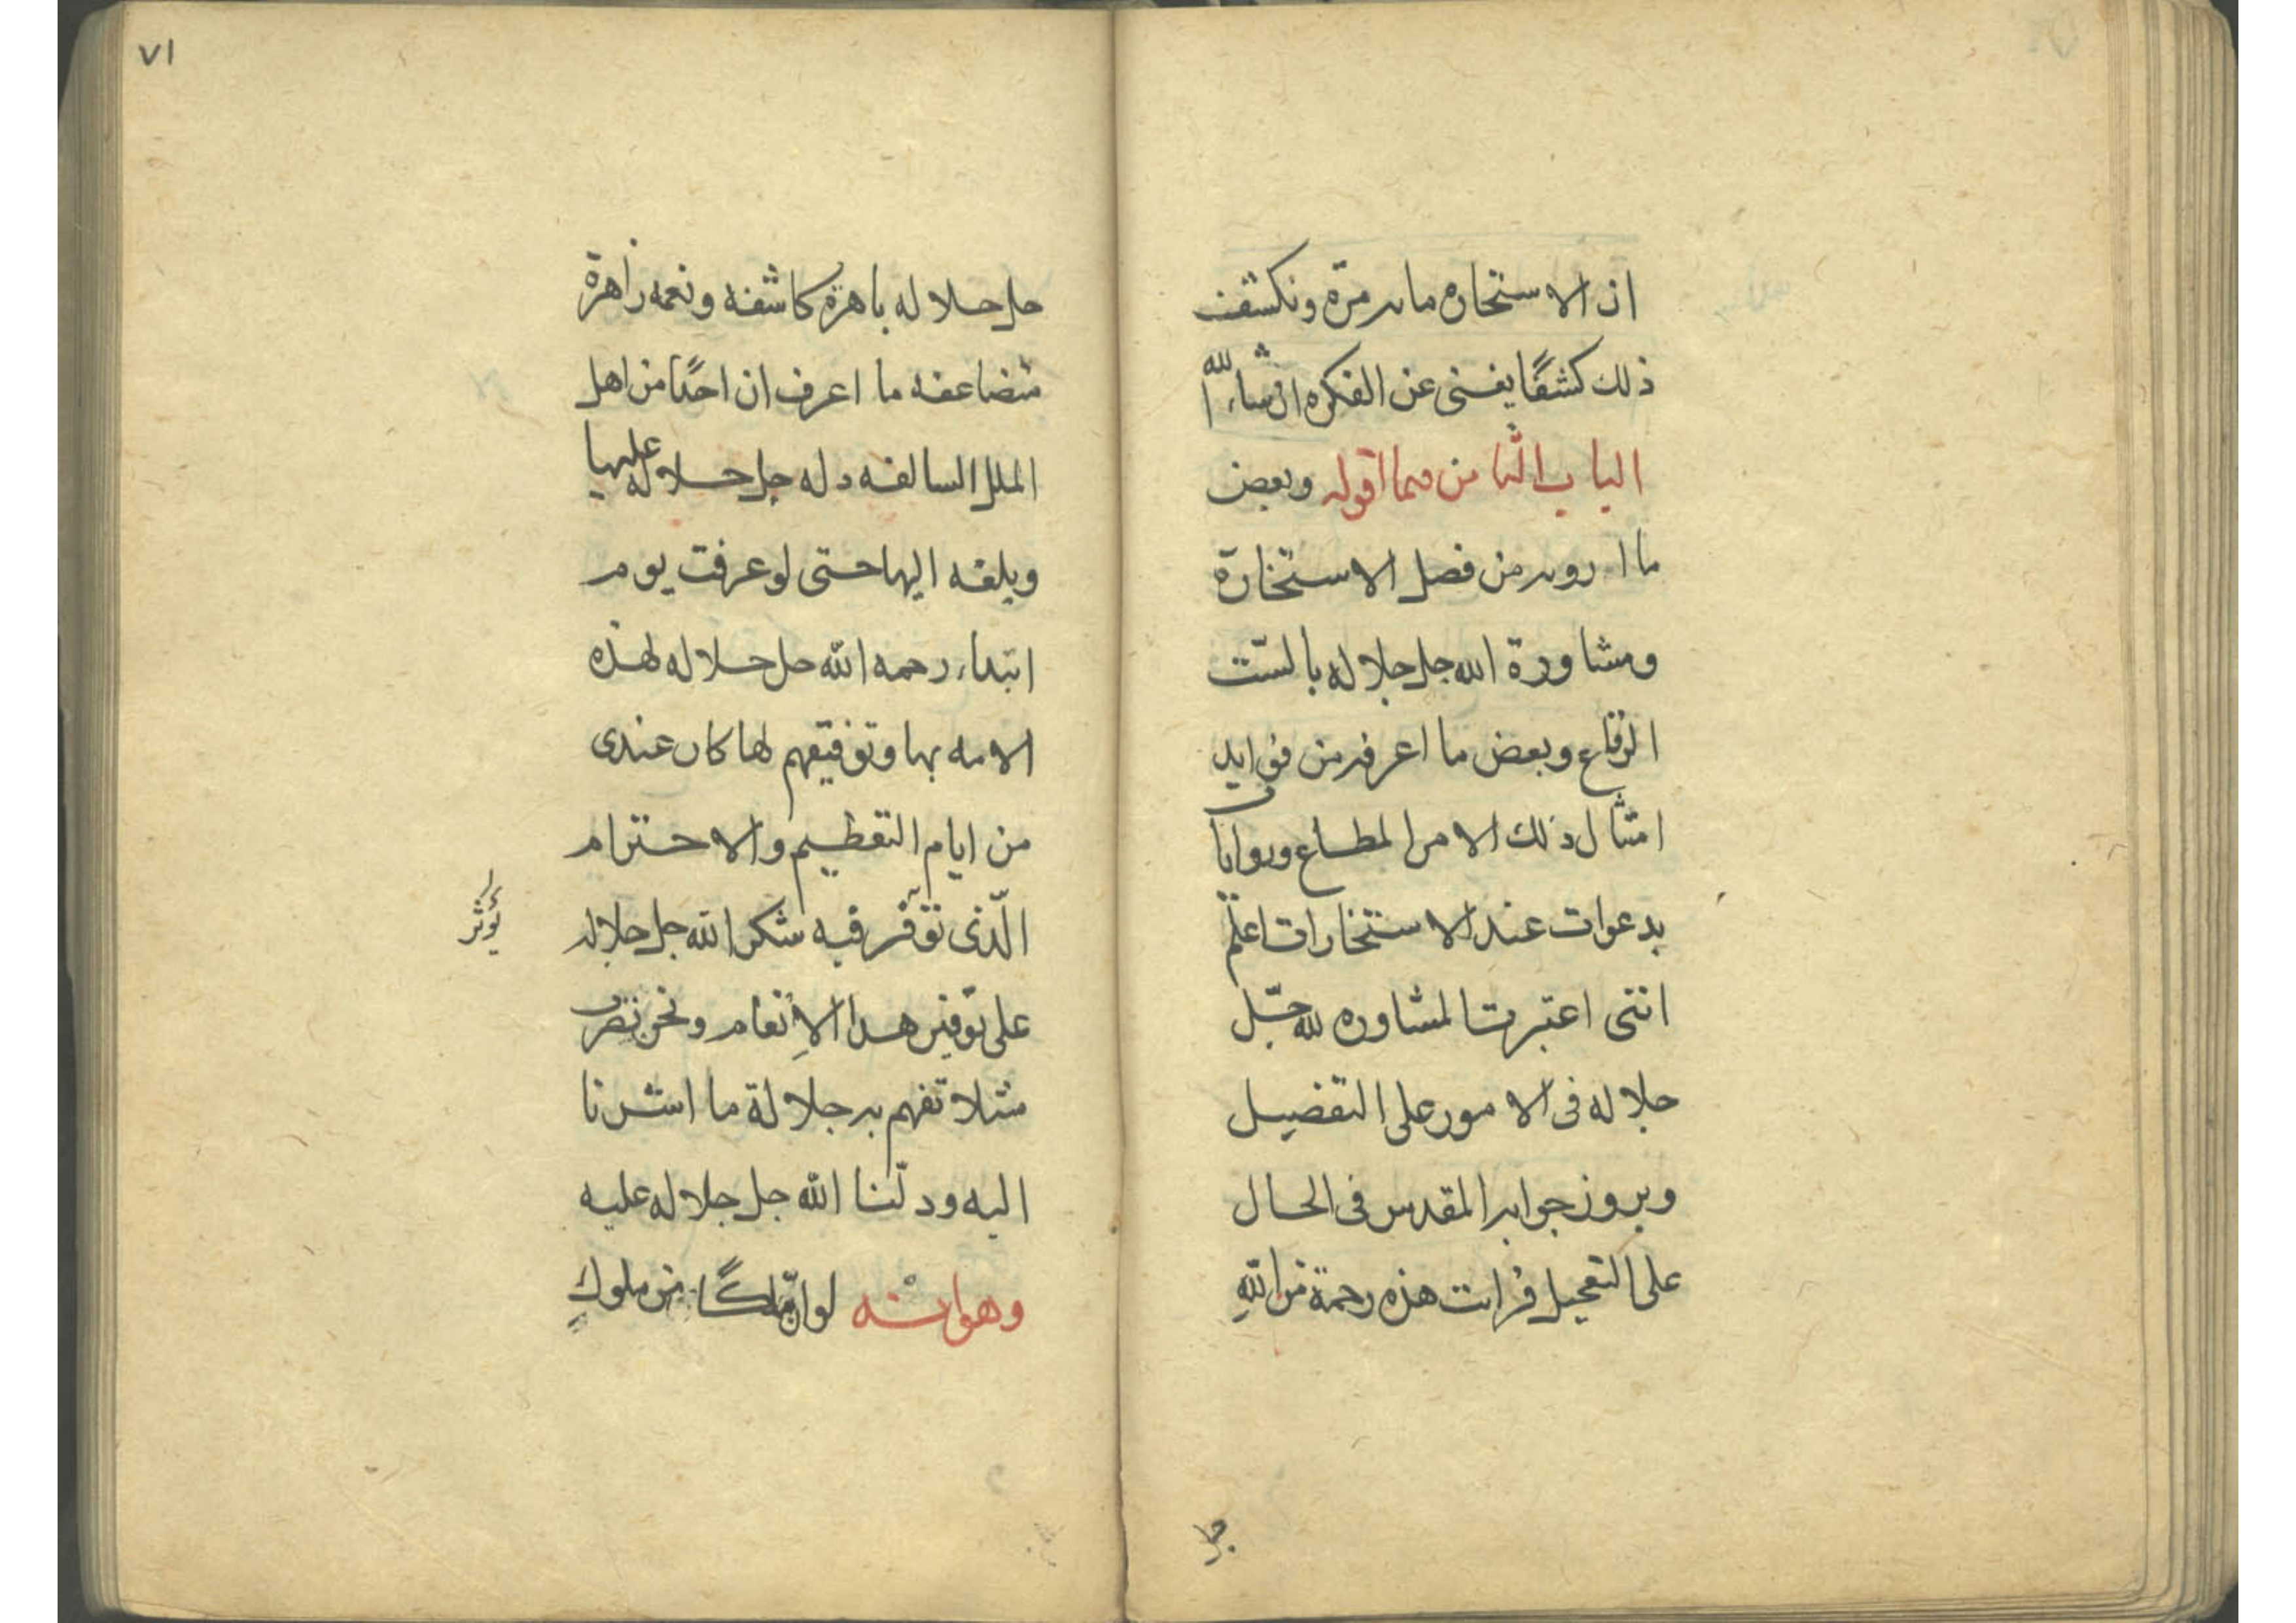 ان الاستخاره مائه مرّة ونكشف
ذلك كشفًا يغنى عن الفكره ان شاء الله
الباب الثامن فيما اقوله وبعض
ما ارويه من فضل الاستخارة
ومشاورة الله جل جلاله بالستّ
الرقاع وبعض ما اعرفه من فوايد
امتثال ذلك الامر المطاع وروايات
بدعوات عند الاستخارات اعلم
اننى اعتبرت المشاوره لله جلّ
جلاله فى الامور على التفصيل
وبروز جوابه المقدس فى الحال
على التعجيل فرايت هذه رحمة من اللهِ
جل
٧١
جل جلاله باهرة كاشفه ونعمه زاهرة
متضاعفه ما اعرف ان احدًا من اهل
الملل السالفه دله جل جلاله عليها
وبلغه اليها حتى لو عرفت يوم
ابتداء رحمه الله جل جلاله لهذه
الامه بها وتوفيقهم لها كان عندى
من ايام التعظيم والاحترام
الّذى توقر فيه شكر الله جل جلاله
يؤثر
على توفير هذا الإنعام ونحن نضرب
مثلا تفهم به جلالة ما اشرنا
اليه ودلّنا الله جل جلاله عليه
وهو انه لو ان ملكًا من ملوكِ